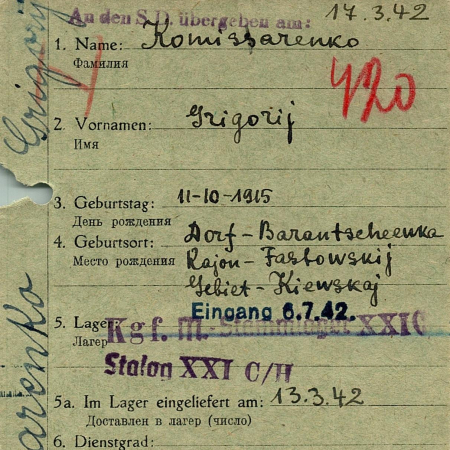 An den S.D. übergeben am: 17.3.42
1. Name: Komissarenko
Фамилия
420
2. Vornamen: Grigorij
Имя
3. Geburtstag: 11-10-1915
День рождения
4. Geburtsort: Dorf-Barantscheenka
Место рождения Rajon-Fastowskij
Gebiet-Kiewskaj
Eingang 6.7.42.
5. Lager: Kgf. M.-Stammlager XXIC
Лагерь
Stalag XXI C/H
5a. Im Lager eingeliefert am: 13.3.42
Доставлен в лагерь (число)
6. Dienstgrad:
Grigorij
arenko